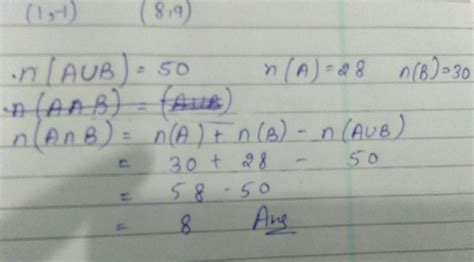 (1,-1) (8,9)
.n(AUB) = 50 n(A)=28 n(B)=30
n(A∩B) = (AUB)
n(A∩B) = n(A) + n(B) - n(AUB)
= 30 + 28 - 50
= 58 - 50
= 8 Ans